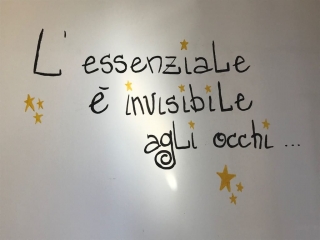 L'essenziale
è invisibile
agli occhi...